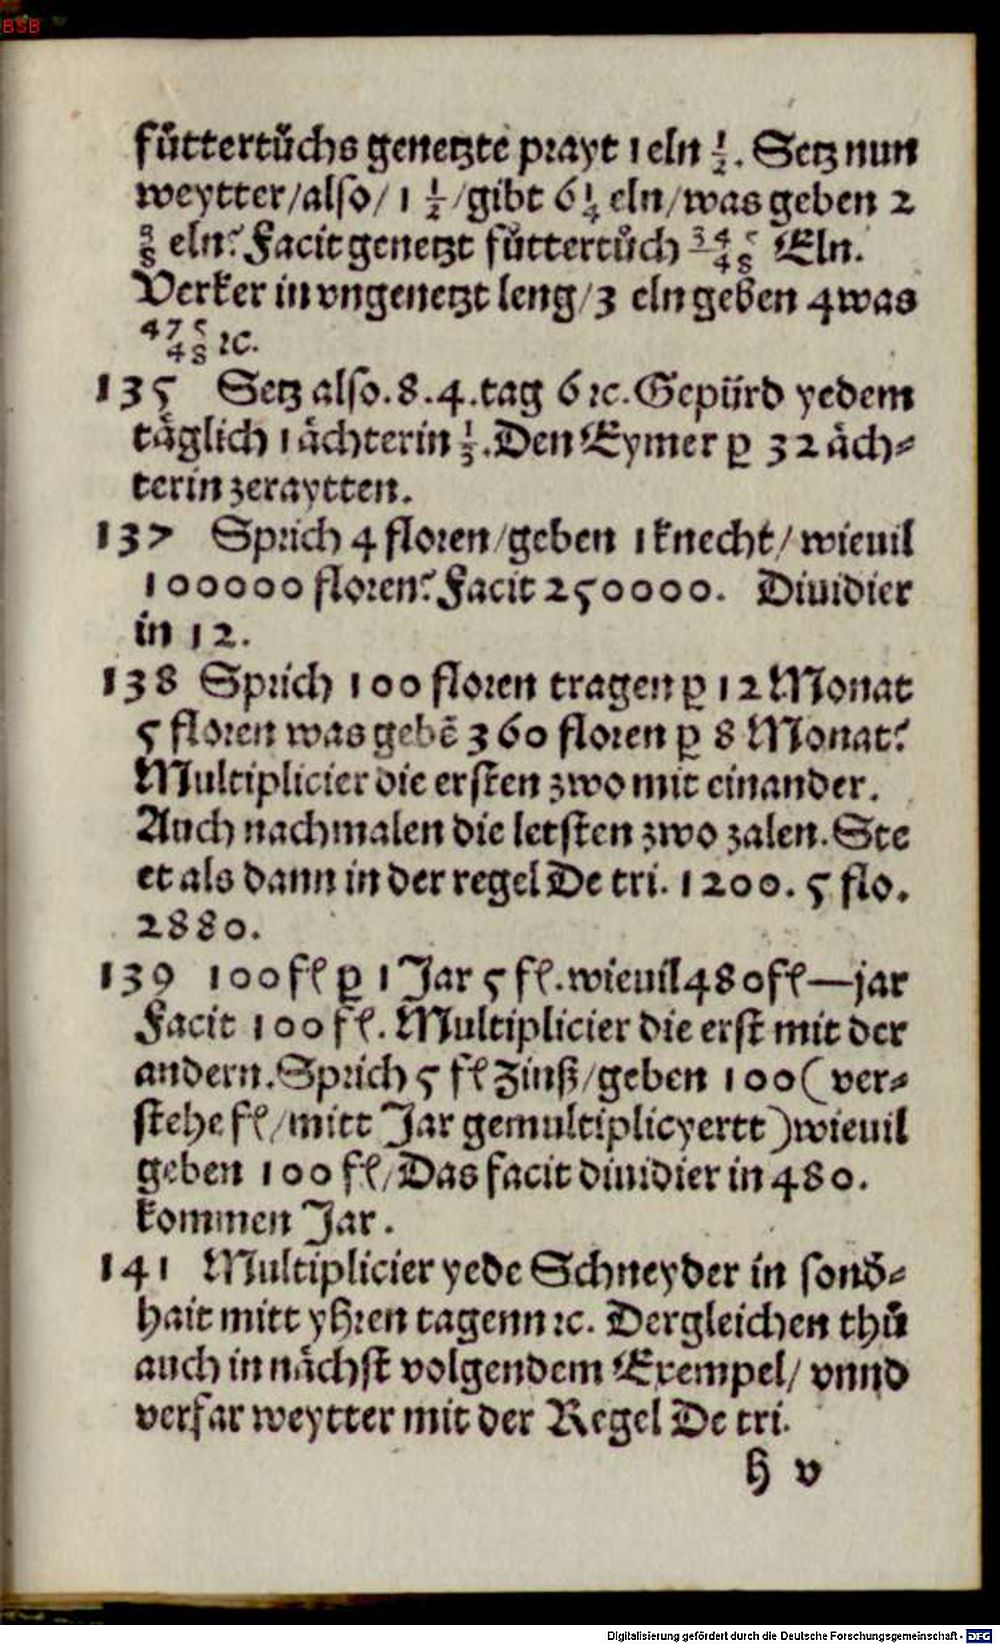 BSB
fůttertůchs genetzte prayt 1 eln 1/2. Setz nun
weytter/also/ 1 1/2 /gibt 6 1/4 eln/was geben 2
eln? Facit genetzt fůttertůch Eln.
Verker in vngenetzt leng/3 eln geben 4 was
ꝛc.
135 Setz also. 8. 4. tag 6 ꝛc. Gepürd yedem
täglich 1 ächterin 1/3. Den Eymer ꝑ 32 äch⸗
terin zeraytten.
137 Sprich 4 floren/geben 1 knecht/ wieuil
100000 floren? Facit 250000. Diuidier
in 12.
138 Sprich 100 floren tragen ꝑ 12 Monat
5 floren was gebē 360 floren ꝑ 8 Monat?
Multiplicier die ersten zwo mit einander.
Auch nachmalen die letsten zwo zalen. Ste
et als dann in der regel De tri. 1200. 5 flo.
2880.
139 100 fl ꝑ 1 Jar 5 fl. wieuil 480 fl—jar
Facit 100 fl. Multiplicier die erst mit der
andern. Sprich 5 fl Zinß/geben 100 (ver⸗
stehe fl/mitt Jar gemultiplicyertt) wieuil
geben 100 fl/Das facit diuidier in 480.
kommen Jar.
141 Multiplicier yede Schneyder in sond̄⸗
hait mitt yhren tagenn ꝛc. Dergleichen thů
auch in nächst volgendem Exempel/ vnnd
verfar weytter mit der Regel De tri.
h v
Digitalisierung gefördert durch die Deutsche Forschungsgemeinschaft - DFG